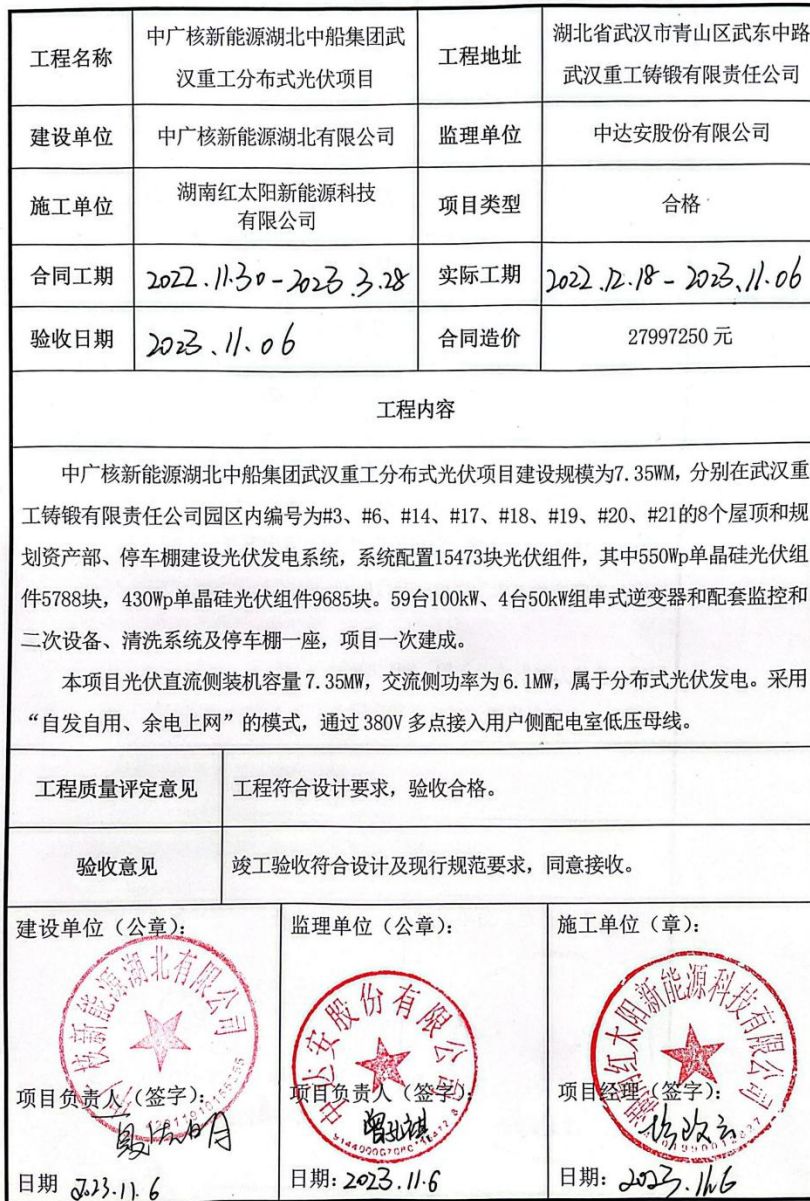 工程名称
中广核新能源湖北中船集团武
汉重工分布式光伏项目
工程地址
湖北省武汉市青山区武东中路
武汉重工铸锻有限责任公司
建设单位
中广核新能源湖北有限公司
监理单位
中达安股份有限公司
施工单位
湖南红太阳新能源科技
有限公司
项目类型
合格
合同工期
2022.11.30-2023.3.28
实际工期
2022.12.18-2023.11.06
验收日期
2023.11.06
合同造价
27997250 元
工程内容
中广核新能源湖北中船集团武汉重工分布式光伏项目建设规模为7.35WM，分别在武汉重
工铸锻有限责任公司园区内编号为#3、#6、#14、#17、#18、#19、#20、#21的8个屋顶和规
划资产部、停车棚建设光伏发电系统，系统配置15473块光伏组件，其中550Wp单晶硅光伏组
件5788块，430Wp单晶硅光伏组件9685块。59台100kW、4台50kW组串式逆变器和配套监控和
二次设备、清洗系统及停车棚一座，项目一次建成。
本项目光伏直流侧装机容量 7.35MW，交流侧功率为 6.1MW，属于分布式光伏发电。采用
“自发自用、余电上网”的模式，通过 380V 多点接入用户侧配电室低压母线。
工程质量评定意见
工程符合设计要求，验收合格。
验收意见
竣工验收符合设计及现行规范要求，同意接收。
建设单位（公章）：
中广核新能源湖北有限公司
项目负责人（签字）：
日期 2023.11.6
监理单位（公章）：
中达安股份有限公司
项目负责人（签字）：
日期：2023.11.6
施工单位（章）：
湖南红太阳新能源科技有限公司
项目经理（签字）：
日期：2023.11.6